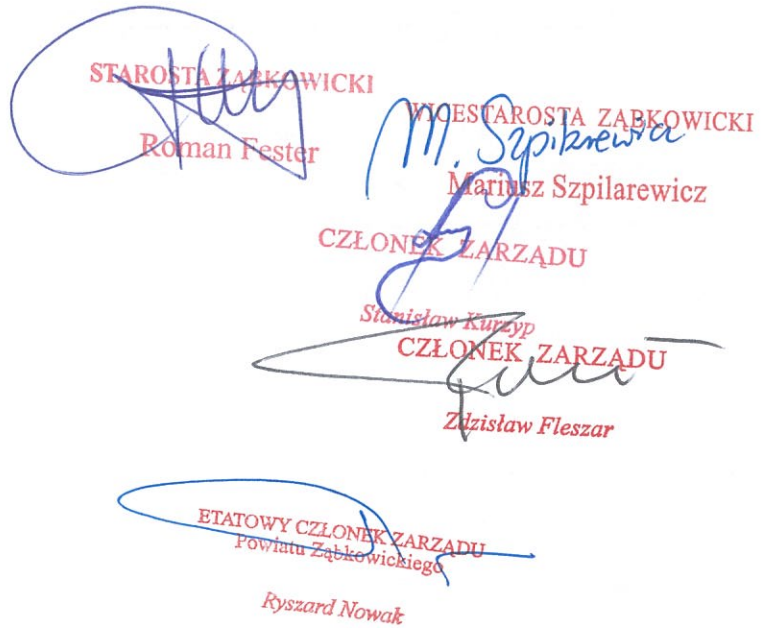 STAROSTA ZĄBKOWICKI
Roman Fester
WICESTAROSTA ZĄBKOWICKI
M. Szpilarewicz
Mariusz Szpilarewicz
CZŁONEK ZARZĄDU
Stanisław Kurzyp
CZŁONEK ZARZĄDU
Zdzisław Fleszar
ETATOWY CZŁONEK ZARZĄDU
Powiatu Ząbkowickiego
Ryszard Nowak